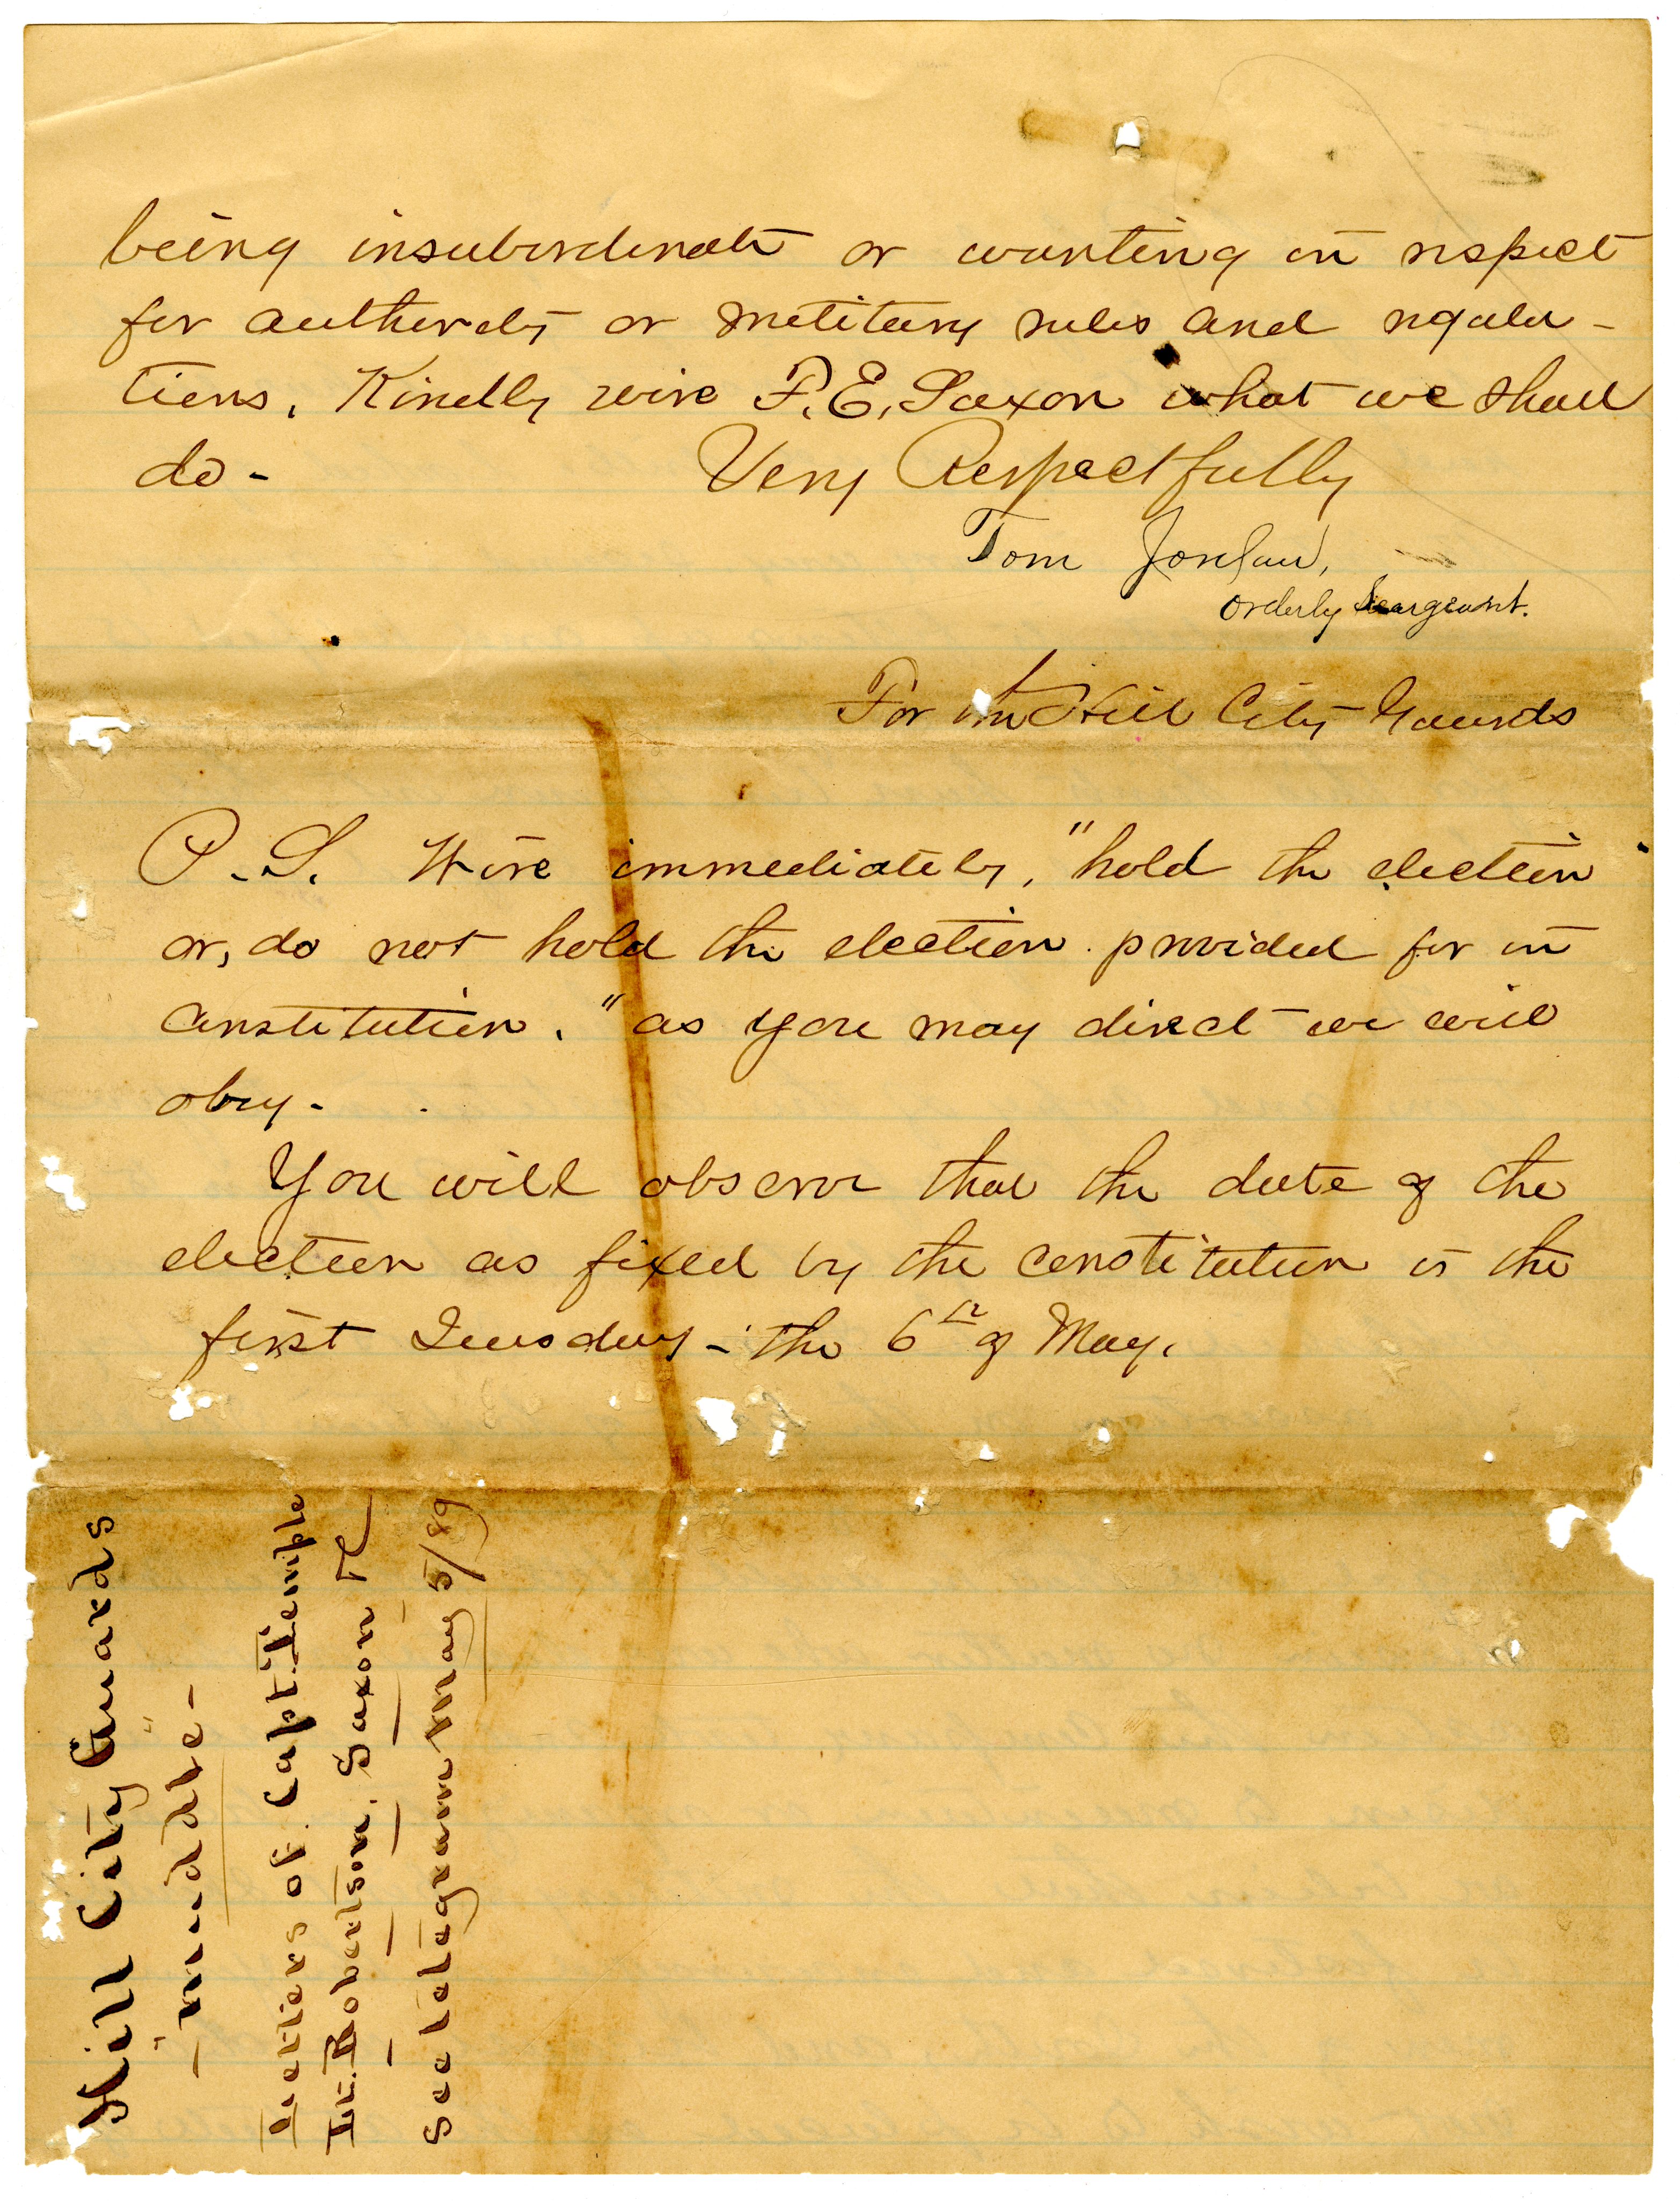 being insubordinate or wanting in respect
for authority or military rules and regula-
tions. Kindly wire F. E. Saxon what we shall
do-
Very Respectfully
Tom Jordan,
Orderly Seargeant.
For the Hill City Gaurds
P.S. Wire immediately, "hold the election
or, do not hold the election provided for in
constitution." as you may direct we will
obey-
You will observe that the date of the
election as fixed by the constitution is the
first Tuesday - the 6th of May.
Hill City Guards
- muddle -
Letters of Capt. Temple
Lt. Robertson. Saxon
See telegram May 5/89